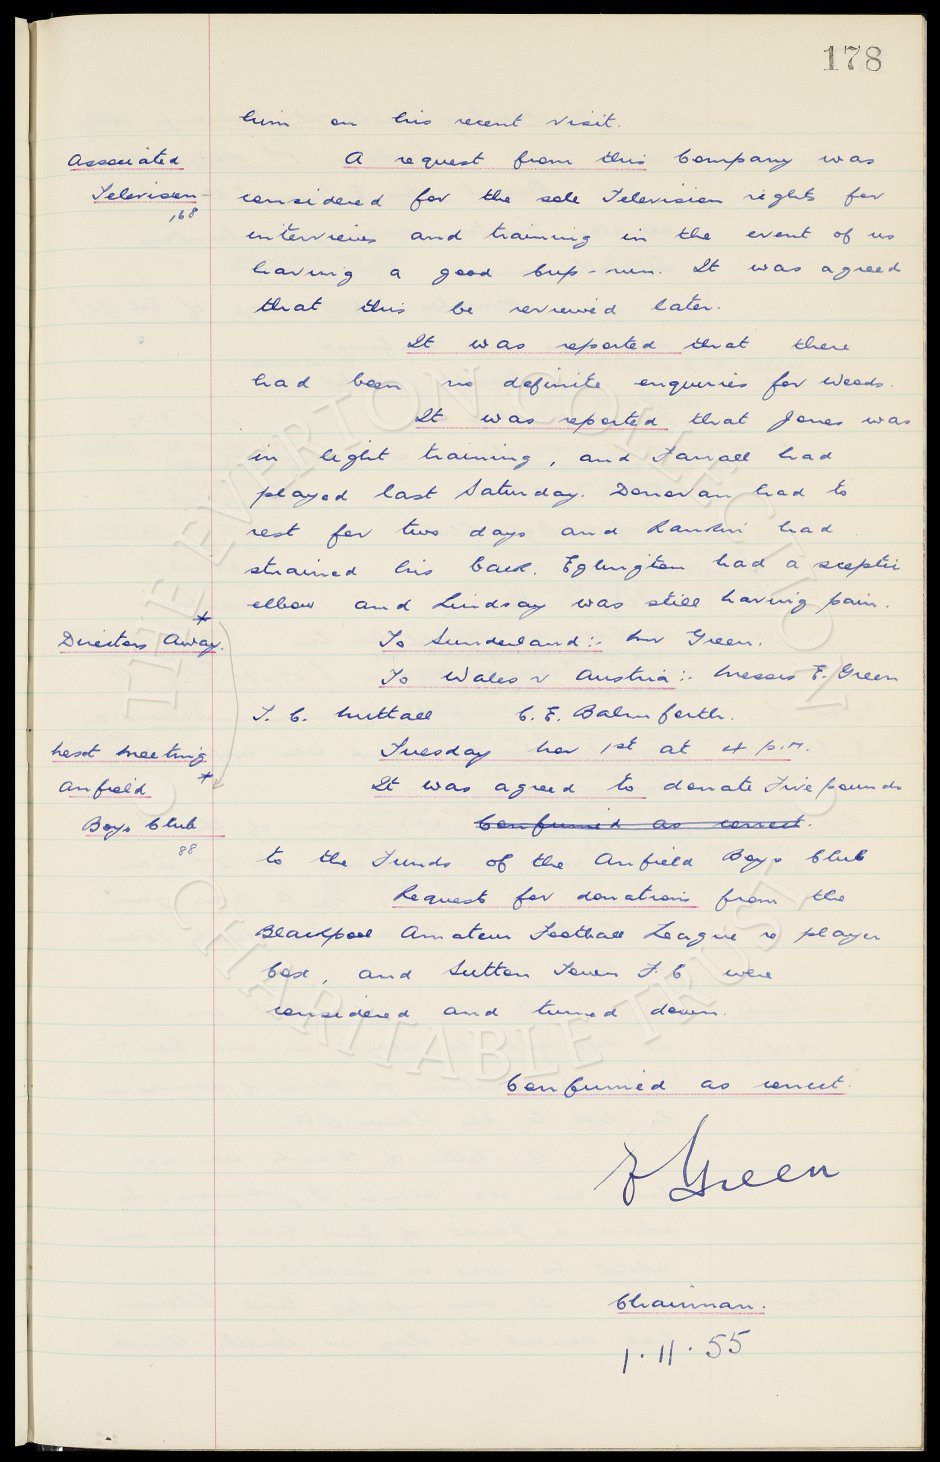 178
him on his recent visit.
Associated A request from this Company was
Television considered for the sole Television rights for
168
interviews and training in the event of us
having a good Cup-run. It was agreed
that this be reviewed later.
It was reported that there
had been no definite enquiries for Woods.
It was reported that Jones was
in light training, and Farrall had
played last Saturday. Donovan had to
rest for two days and Rankin had
strained his back. Eglington had a sceptic
elbow and Lindsay was still having pain.
Directors Away. * To Sunderland:- Mr Green.
To Wales v Austria:- Messrs F. Green
T. C. Nuttall C. E. Balmforth.
Next Meeting Tuesday Nov 1st at 4 p.m.
Anfield * It was agreed to donate Five pounds
Boys Club Confirmed as correct.
88
to the Funds of the Anfield Boys Club
Request for donations from the
Blackpool Amateur Football League re player
Cox, and Sutton Town F.C were
considered and turned down.
Confirmed as correct.
F Green
Chairman.
1.11.55
THE EVERTON COLLECTION
CHARITABLE TRUST